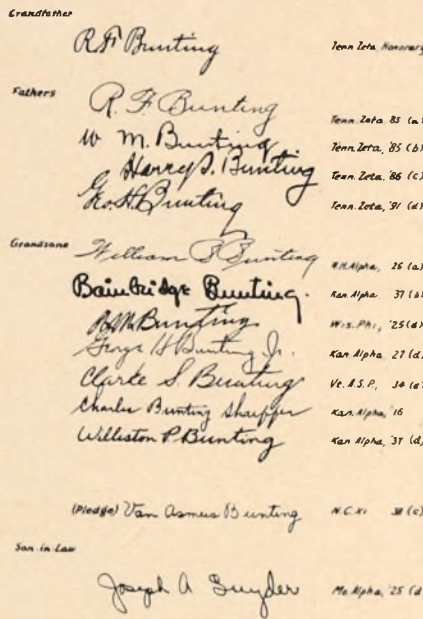 Grandfather
R F Bunting Tenn Zeta, Honorary
Fathers
R. F. Bunting Tenn. Zeta 85 (a)
W M. Bunting Tenn Zeta, '85 (b)
Harry S. Bunting Tenn. Zeta, '86 (c)
Geo. H. Bunting Tenn. Zeta, '91 (d)
Grandsons
William B Bunting Alpha, 26 (a)
Bainbridge Bunting. Kan Alpha 37 (b)
Bunting Wis. Phi, '25 (d)
George H Bunting Jr. Kan Alpha 27 (d)
Clarke S. Bunting Ve. A.S.P., 34
Charles Bunting Shaeffer Kan. Alpha, 16
Williston P. Bunting Kan Alpha, '37 (d)
(Pledge) Van Asmus Bunting N.C. XI 38 (c)
Son-in-Law
Joseph A Snyder Mo Alpha, '25 (d